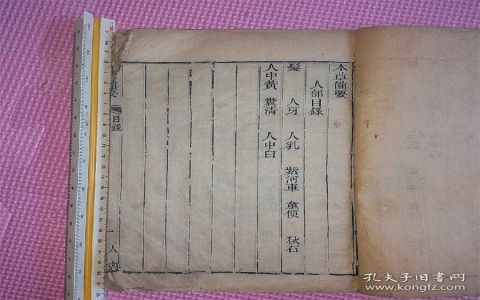 本草備要
人部目錄
髮 人牙 人乳 紫河車 童便 秋石
人中黃 糞清 人中白
目錄
一
人部
孔夫子旧书网
www.kongfz.com